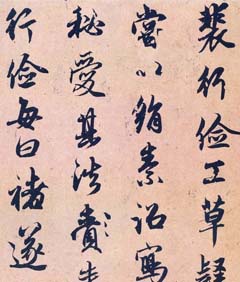 裴行儉工草隸
嘗以絹素詔寫
秘愛其法賚
行儉每曰褚遂